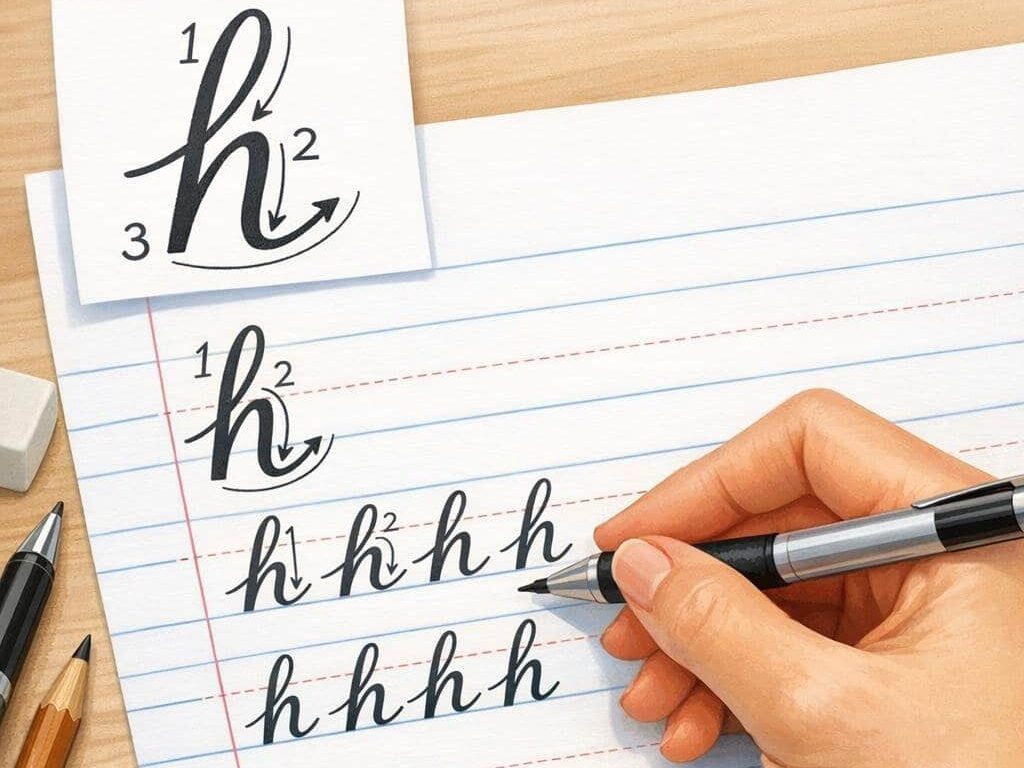 1 h 2
3
1 h 2
h 1 h 2 h h
h h h h